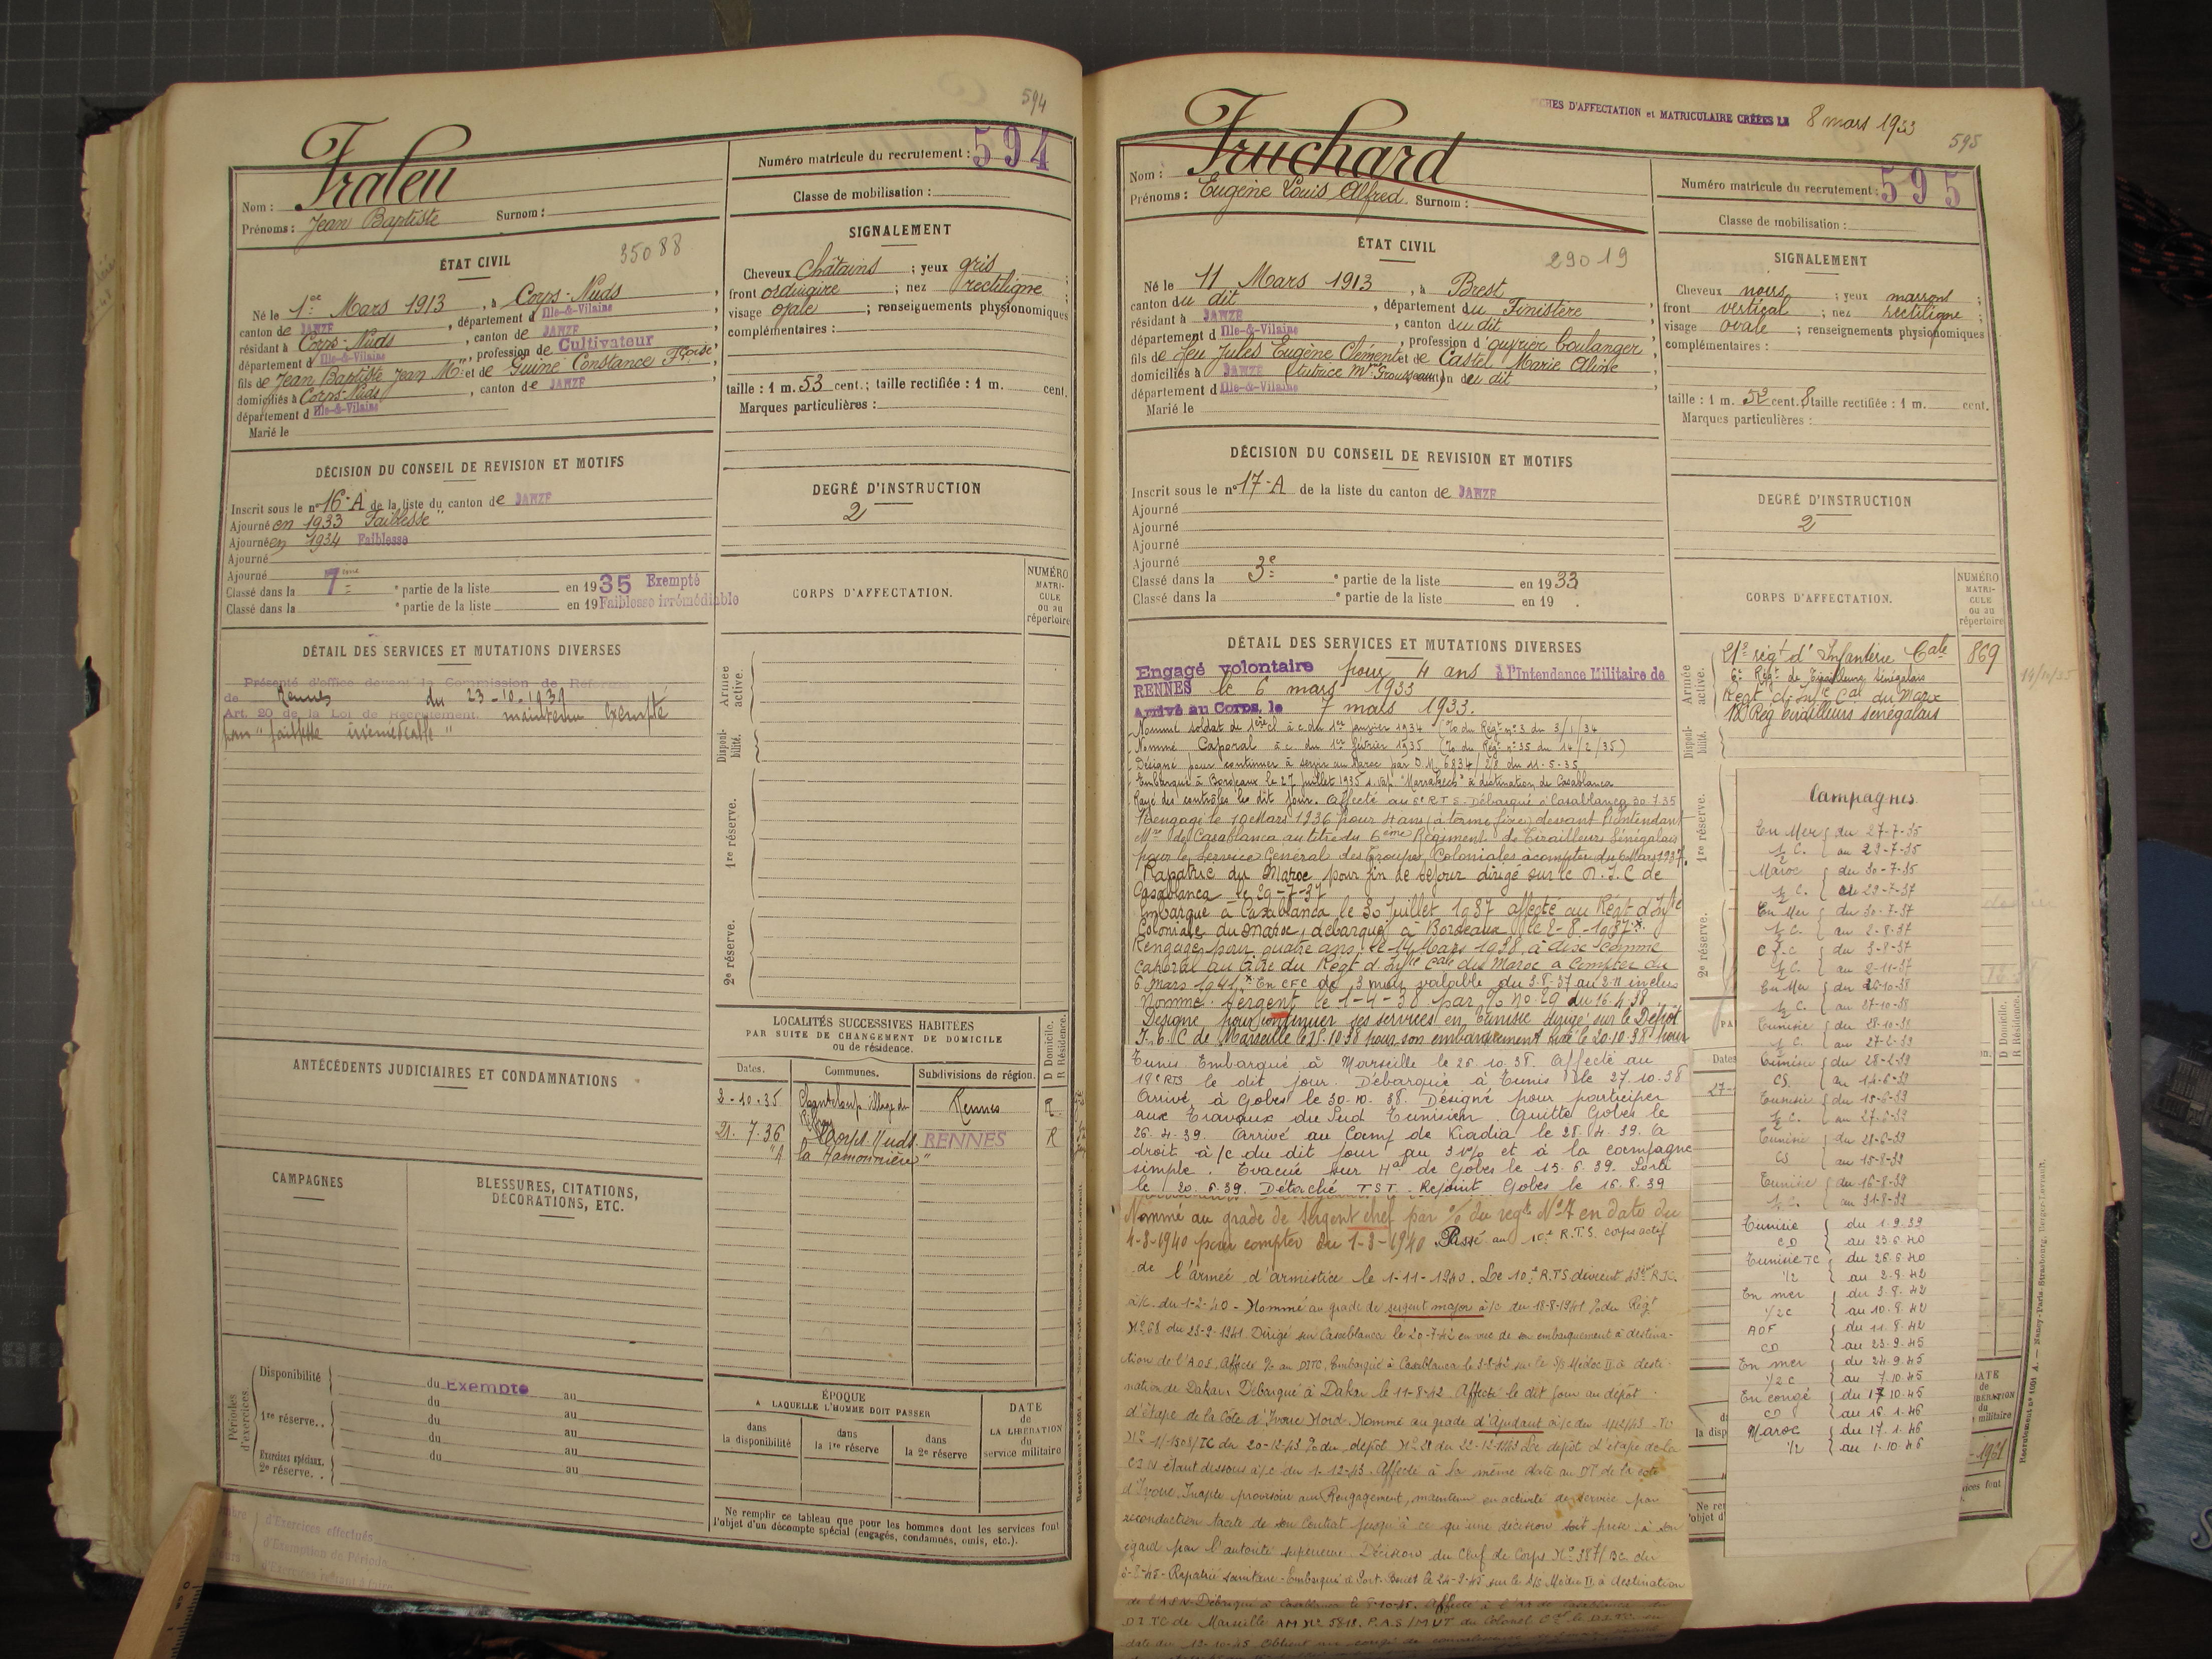 594
Nom : Fraleu
Prénoms : Jean Baptiste Surnom :
Numéro matricule du recrutement : 594
Classe de mobilisation :
ÉTAT CIVIL
35088
Né le 1er Mars 1913, à Corps-Nuds,
canton de JANZÉ, département d Ille-&-Vilaine,
résidant à Corps-Nuds, canton de JANZÉ,
département d Ille-&-Vilaine, profession de Cultivateur,
fils de Jean Baptiste Jean Mie et de Guiné Constance Fçoise,
domiciliés à Corps-Nuds, canton de JANZÉ,
département d Ille-&-Vilaine
Marié le
SIGNALEMENT
Cheveux Châtains ; yeux gris ;
front ordinaire ; nez rectiligne ;
visage ovale ; renseignements physionomiques
complémentaires :
taille : 1 m. 53 cent. ; taille rectifiée : 1 m. cent.
Marques particulières :
DÉCISION DU CONSEIL DE REVISION ET MOTIFS
Inscrit sous le n° 16-A de la liste du canton de JANZÉ
Ajourné en 1933 Faiblesse
Ajourné en 1934 Faiblesse
Ajourné
Ajourné
Classé dans la 7ème partie de la liste en 1935 Exempté
Classé dans la partie de la liste en 19 Faiblesse irrémédiable
DEGRÉ D'INSTRUCTION
2
DÉTAIL DES SERVICES ET MUTATIONS DIVERSES
Présenté d'office devant la Commission de Réforme
de Rennes du 23-10-1939
Art. 20 de la Loi de Recrutement. maintenu exempté
pour "faiblesse irrémédiable"
CORPS D'AFFECTATION.
NUMÉRO MATRICULE ou au répertoire
Armée active.
Disponibilité.
1re réserve.
2e réserve.
ANTÉCÉDENTS JUDICIAIRES ET CONDAMNATIONS
LOCALITÉS SUCCESSIVES HABITÉES
PAR SUITE DE CHANGEMENT DE DOMICILE
ou de résidence.
D Domicile.
R Résidence.
Dates. Communes. Subdivisions de région.
2-10-35 Chanteloup village du Rennes R
21.7.36 Corps-Nuds RENNES R
la Hamonnière
CAMPAGNES
BLESSURES, CITATIONS,
DÉCORATIONS, ETC.
Périodes d'exercices
Disponibilité du Exempté au
du au
1re réserve.. du au
du au
Exercices spéciaux.
2e réserve. . du au
ÉPOQUE
A LAQUELLE L'HOMME DOIT PASSER
dans la disponibilité
dans la 1re réserve
dans la 2e réserve
DATE de LA LIBÉRATION du service militaire
Ne remplir ce tableau que pour les hommes dont les services font
l'objet d'un décompte spécial (engagés, condamnés, omis, etc.).
d'Exercices effectués
d'Exemption de Période
d'Exercices restant à faire
FICHES D'AFFECTATION et MATRICULAIRE CRÉÉES LE 8 mars 1933
595
Nom : Fruchard
Prénoms : Eugène Louis Alfred. Surnom :
Numéro matricule du recrutement : 595
Classe de mobilisation :
ÉTAT CIVIL
29019
Né le 11 Mars 1913, à Brest,
canton du dit, département du Finistère,
résidant à JANZÉ, canton du dit,
département d Ille-&-Vilaine, profession d'ouvrier boulanger,
fils de feu Jules Eugène Clément et de Castel Marie Aline,
domiciliés à JANZÉ (tutrice Mme Grousseau) canton du dit,
département d Ille-&-Vilaine
Marié le
SIGNALEMENT
Cheveux noirs ; yeux marrons ;
front vertical ; nez rectiligne ;
visage ovale ; renseignements physionomiques
complémentaires :
taille : 1 m. 52 cent. 8 taille rectifiée : 1 m. cent.
Marques particulières :
DÉCISION DU CONSEIL DE REVISION ET MOTIFS
Inscrit sous le n° 17-A de la liste du canton de JANZÉ
Ajourné
Ajourné
Ajourné
Ajourné
Classé dans la 3e partie de la liste en 1933
Classé dans la partie de la liste en 19 .
DEGRÉ D'INSTRUCTION
2
CORPS D'AFFECTATION.
NUMÉRO MATRICULE ou au répertoire
Armée active.
21e régt d'Infanterie Cale 869
6e Régt de Tirailleurs Sénégalais
Régt d'Infie Cale du Maroc
18e Rég tirailleurs sénégalais
Disponibilité.
1re réserve.
2e réserve.
DÉTAIL DES SERVICES ET MUTATIONS DIVERSES
Engagé volontaire pour 4 ans à l'Intendance Militaire de
RENNES le 6 mars 1933
Arrivé au Corps, le 7 mars 1933.
Nommé soldat de 1ère cl à c. du 1er janvier 1934 (O/ du Régt n° 3 du 3/1/34
Nommé Caporal à c. du 1er février 1935 (O/ du Régt n° 35 du 14/2/35)
Désigné pour continuer à servir au Maroc par D.M. 6834 2/8 du 11-5-35
Embarqué à Bordeaux le 27 juillet 1935 s. vap. "Marrakech" à destination de Casablanca
Rayé des contrôles le dit jour. Affecté au 6e R.T.S. Débarqué à Casablanca 30.7.35
Rengagé le 19 Mars 1936 pour 4 ans à terme fixe devant l'Intendant
Mre de Casablanca au titre du 6ème Régiment de Tirailleurs Sénégalais
pour le Service Général des Troupes Coloniales à compter du 6 Mars 1937.
Rapatrié du Maroc pour fin de séjour dirigé sur le D.I.C de
Casablanca le 29-7-37
Embarqué à Casablanca le 30 Juillet 1937 affecté au Régt d'Infie
Coloniale du Maroc, débarqué à Bordeaux le 2-8-1937.x
Rengagé pour quatre ans, le 14 Mars 1938, à dix comme
caporal au titre du Régt d'Infie Cale du Maroc à compter du
6 mars 1941. x En CFC de 3 mois valable du 3.8.37 au 2.11 inclus
Nommé Sergent le 1-4-38 par O/ no 29 du 16.4.38
Désigné pour continuer ses services en Tunisie dirigé sur le Dépôt
I.C de Marseille le 15.10.38 pour son embarquement fixé le 20.10.38 pour
Tunis Embarqué à Marseille le 26.10.38. Affecté au
18e RTS le dit jour. Débarqué à Tunis le 27.10.38
Arrivé à Gabès le 30-10.38. Désigné pour participer
aux Travaux du Sud Tunisien. Quitte Gabès le
26.4.39. Arrivé au Camp de Kiadia le 28.4.39. A
droit à /c du dit jour au 3 % et à la campagne
simple. Evacué sur Hal de Gabès le 15.6.39. Sorti
le 20.6.39. Détaché T.S.T. Rejoint Gabès le 16.8.39
Nommé au grade de Sergent chef par O/ du regt N° 7 en date du
4-3-1940 pour compter du 1-3-1940. Passé au 10e R.T.S. corps actif
de l'armée d'armistice le 1-11-1940. Le 10e R.T.S devient 43e R.I.C.
à/c. du 1-2-40 - Nommé au grade de sergent major à/c du 18-8-1941 O/ du Régt
N° 68 du 23-9-1941. Dirigé sur Casablanca le 20-7-42 en vue de son embarquement à destina-
tion de l'A.O.F. Affecté au DITC, Embarqué à Casablanca le 3-8-42 sur le S/S Médoc II à desti-
nation de Dakar. Débarqué à Dakar le 11-8-42. Affecté le dit jour au dépôt
d'étape de la Côte d'Ivoire Nord. Nommé au grade d'Ajudant à/c du 1/12/43 - NO
N° 11.150 S/TC du 20-12-43 O/ du dépôt N° 21 du 22-12-1943. Le dépôt d'étape de la
C.I.N étant dissous à/c du 1-12-43. Affecté à la même date au DT de la côte
d'Ivoire. Inapte provisoire au Rengagement, maintenu en activité de service par
reconduction tacite de son Contrat jusqu'à ce qu'une décision soit prise à son
égard par l'autorité supérieure. Décision du Chef de Corps N° 387/BC du
3-8-45 - Rapatrié sanitaire - Embarqué à Port-Bouet le 24-9-45 sur le S/S Médie II à destination
de l'A.F.N. Débarqué à Casablanca le 8-10-45.
DITC de Marseille AM N° 5818. P.A.S/MUT du Colonel Ct le D.I.T.C. en
date du 12-10-45 Obtient un congé de
Campagnes
En Mer { du 27-7-35
½ C. { au 29-7-35
Maroc { du 30-7-35
½ C. { au 29-7-37
En Mer { du 30-7-37
½ C. { au 2-8-37
C.F.C { du 3-8-37
½ C. { au 2-11-37
En Mer { du 26-10-38
½ C. { au 27-10-38
Tunisie { du 28-10-38
½ C. { au 27-2-39
Tunisie { du 28-2-39
CS. { au 14-6-39
Tunisie { du 15-6-39
½ C. { au 27-6-39
Tunisie { du 28-6-39
CS { au 15-8-39
Tunisie { du 16-8-39
½ C. { au 31-8-39
Tunisie { du 1.9.39
CD { au 25.6.40
Tunisie TC { du 26.6.40
1/2 { au 2.8.42
En mer { du 3.8.42
1/2 C { au 10.8.42
AOF { du 11.8.42
CD { au 23.9.45
En mer { du 24.9.45
1/2 C { au 7.10.45
En congé { du 17.10.45
CD { au 16.1.46
Maroc { du 17.1.46
1/2 { au 1.10.46
Recrutement n° 1001 A. — Nancy-Paris-Strasbourg, Berger-Levrault.